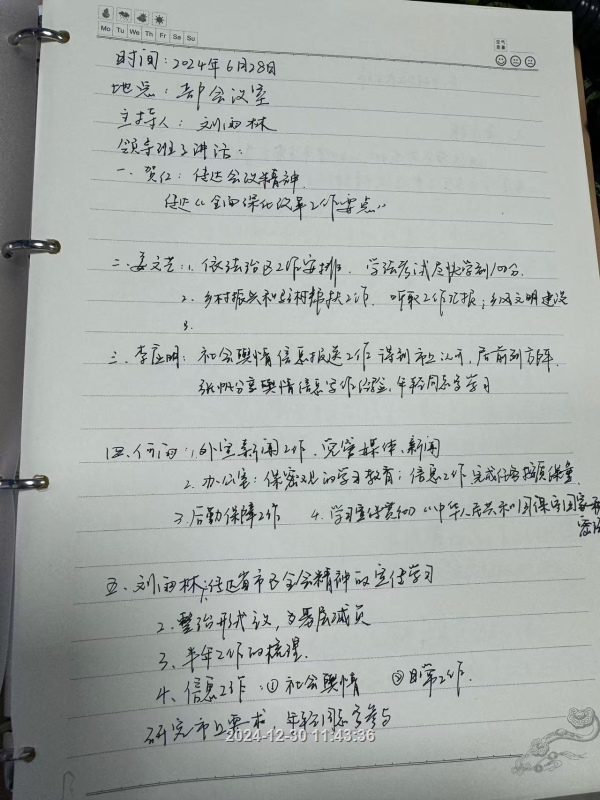 Mo Tu We Th Fr Sa Su
时间：2024年6月28日
地点：部会议室
主持人：刘西林
领导班子讲话：
一、贺仁：传达会议精神
传达《全面深化改革工作要点》
二、姜文芝：1. 依法治区工作安排，学法考试尽快学到100分
2. 乡村振兴和驻村帮扶工作，听取工作汇报；乡风文明建设
3.
三、李应明：社会舆情信息报送工作 得到市上认可，居前列
分享舆情信息写作经验，年轻同志多学习
四、何 ：1. 外宣新闻工作，央媒体、新闻
2. 办公室：保密观的学习教育；信息工作，完成任务
3. 后勤保障工作 4. 学习宣传贯彻《中华人民共和国保守国家秘密法
五、刘西林：1. 传达省市区全会精神的宣传学习
2. 整治形式主义，为基层减负
3. 半年工作的梳理
4. 信息工作：① 社会舆情 ② 日常工作
研究市上要求，年轻同志多参与
2024-12-30 11:43:36